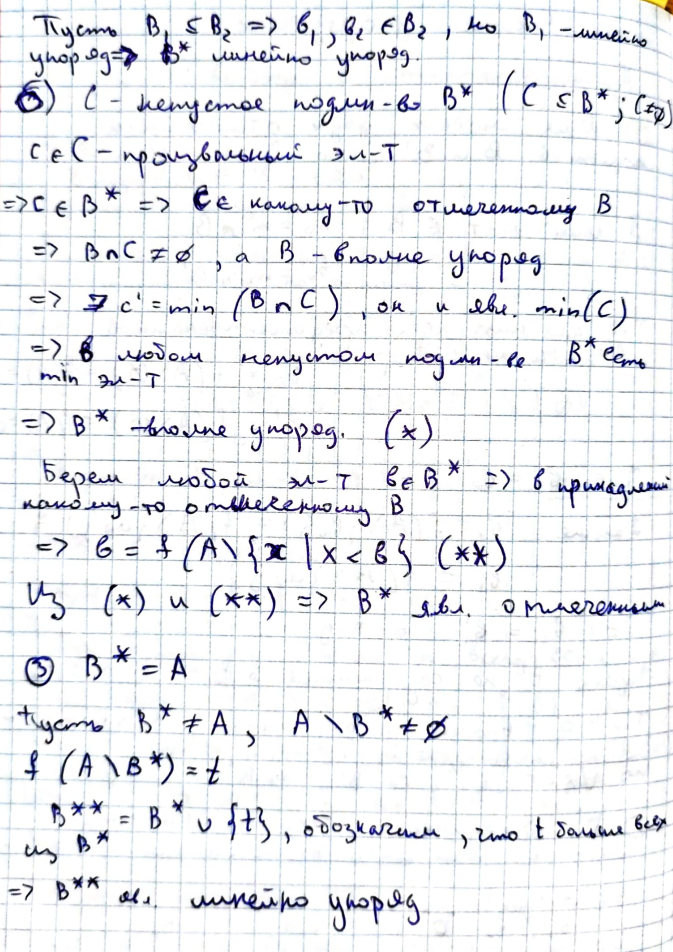 Пусть B₁ ⊆ B₂ => b₁, b₂ ∈ B₂, но B₁ - линейно
упоряд => B* линейно упоряд.
б) C - непустое подмн-во B* (C ⊆ B*; C≠∅)
c ∈ C - произвольный эл-т
=> c ∈ B* => C ∈ какому-то отмеченному B
=> B∩C ≠ ∅, а B - вполне упоряд
=> ∃ c' = min (B∩C), он и явл. min(C)
=> в любом непустом подмн-ве B* есть
min эл-т
=> B* - вполне упоряд. (*)
Берем любой эл-т b∈B* => b принадлежит
какому-то отмеченному B
=> b = f (A\{x | x < b} (**)
Из (*) и (**) => B* явл. отмеченным
③ B* = A
Пусть B* ≠ A, A \ B* ≠ ∅
f (A\B*) = t
B** = B* ∪ {t}, обозначим, что t больше всех
из B*
=> B** явл. линейно упоряд